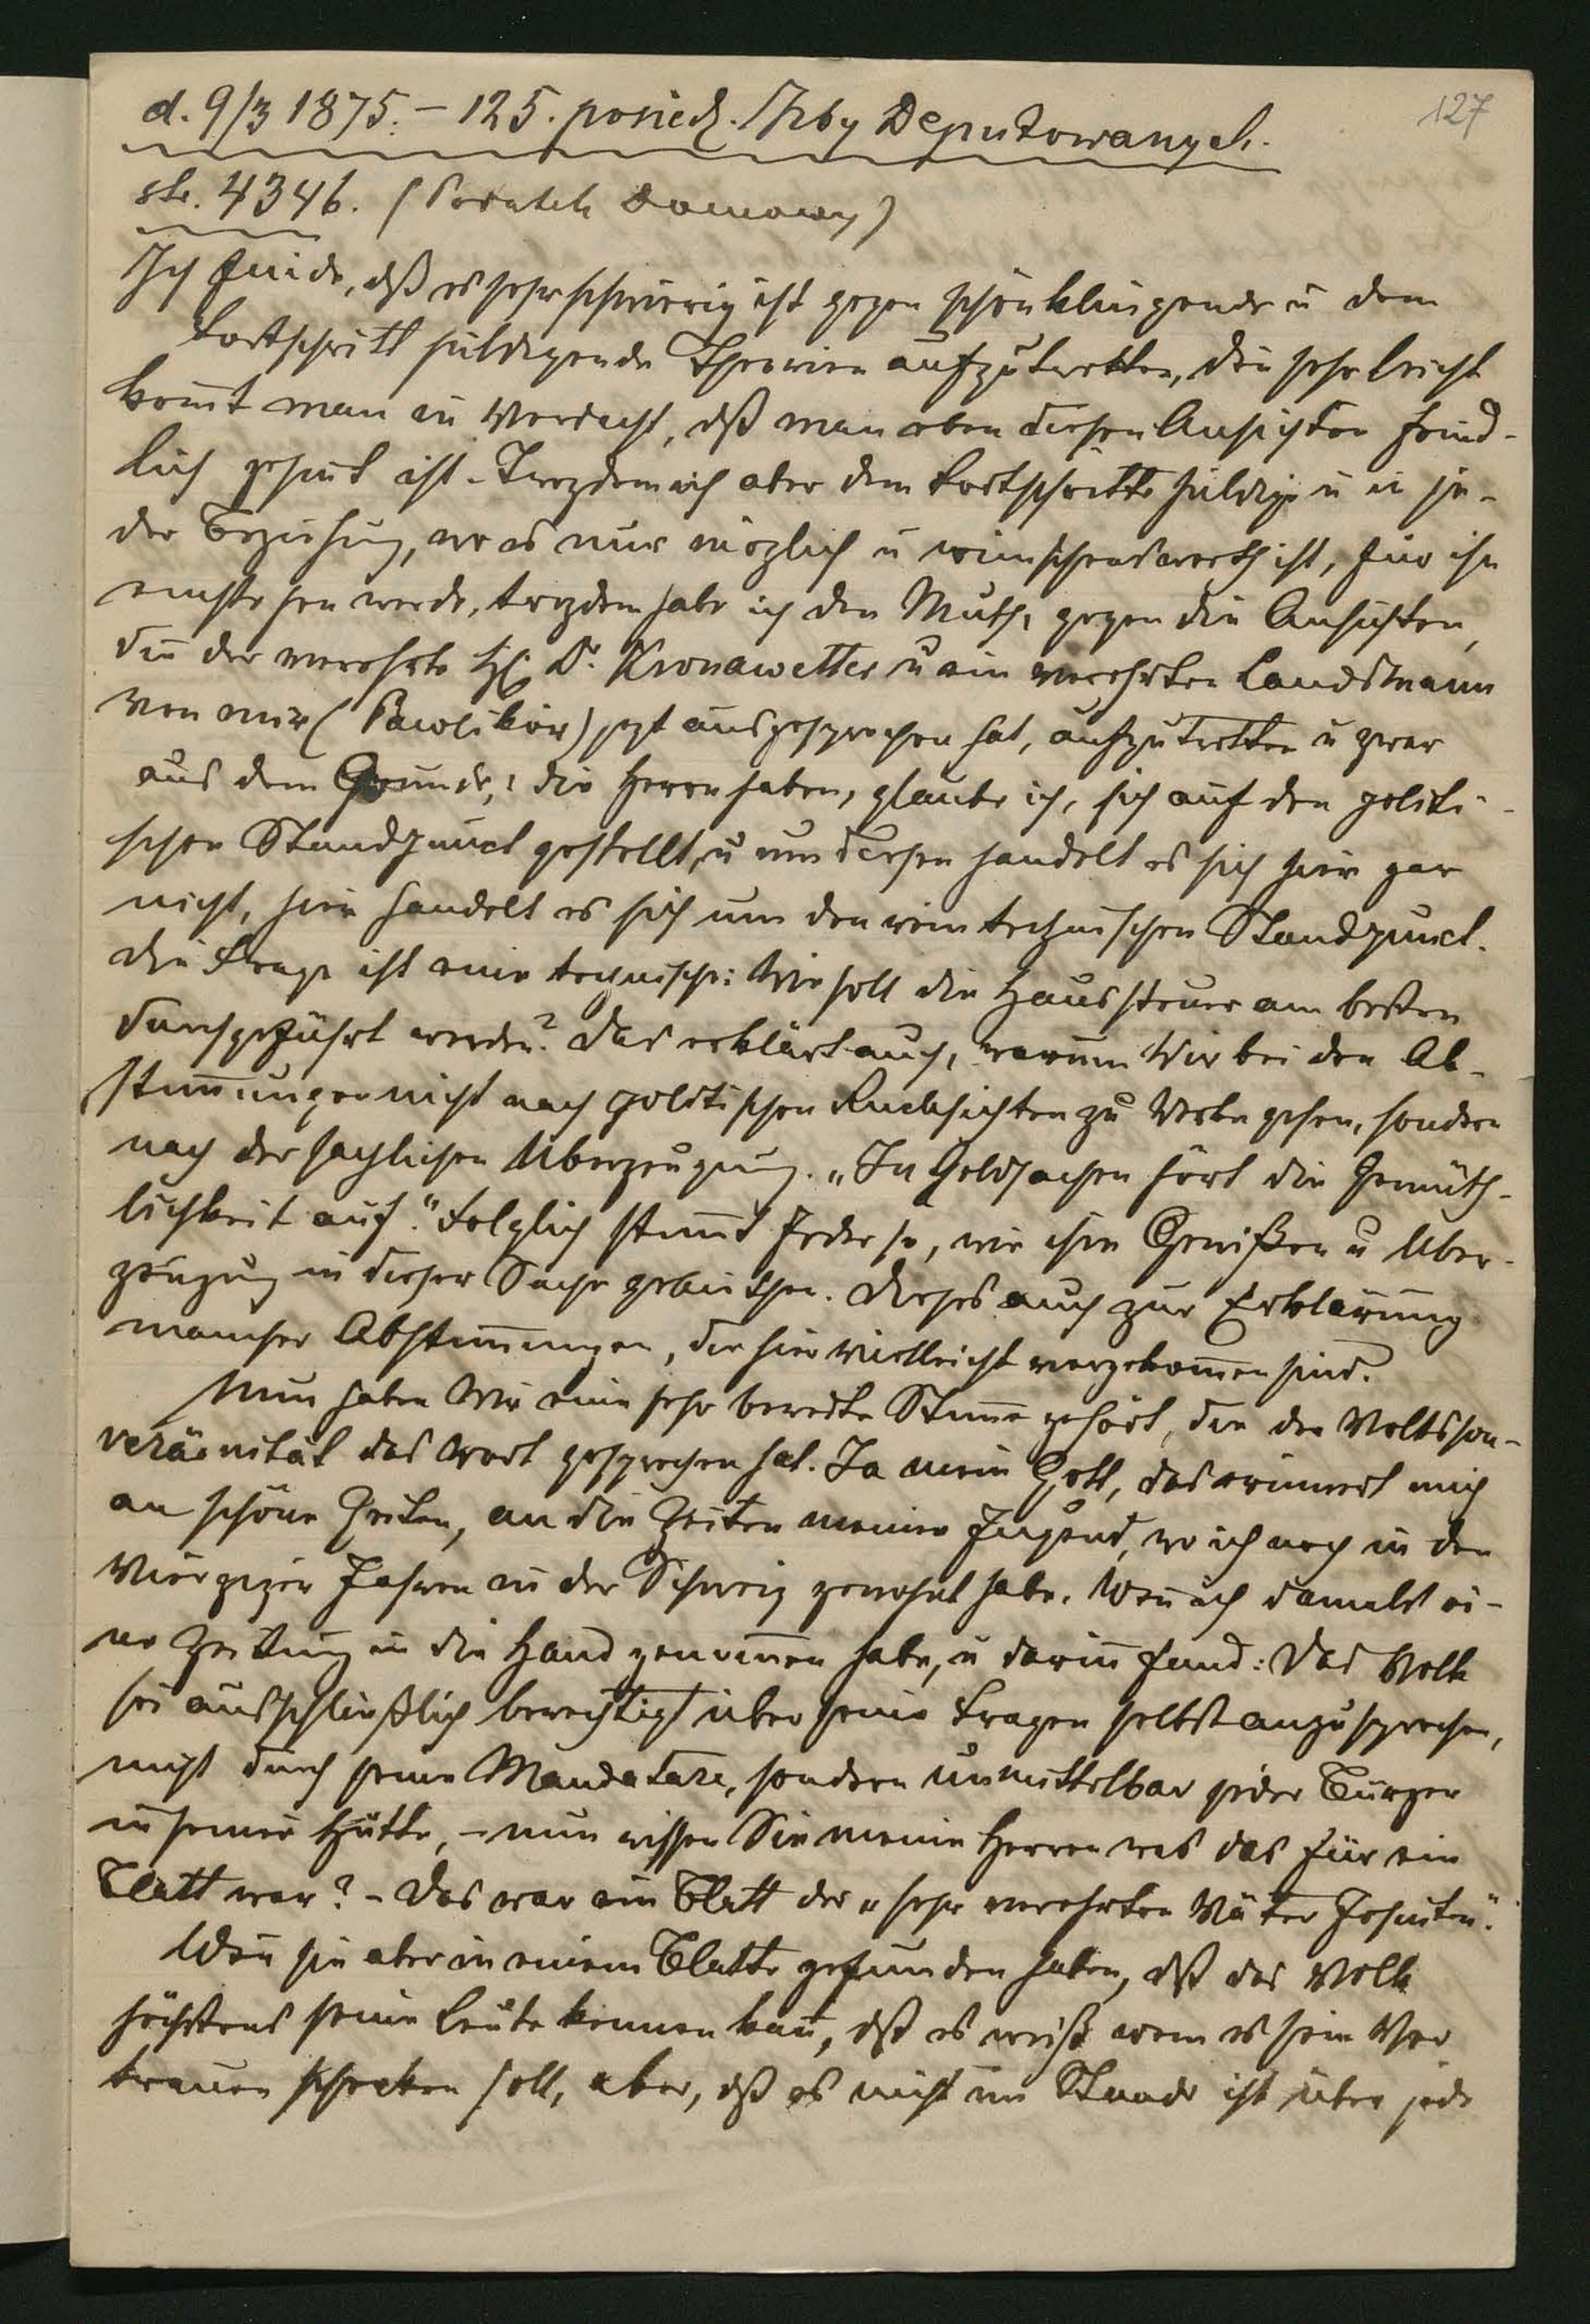 127
d. 9/3 1875. – 125. posiedz. Izby Deputowanych.
str. 4346. (Podatek domowy)
Ich finde, dß es sehr schwierig ist gegen schönklingende u dem
Fortschritt huldigende Theorien aufzutretten, den sehr leicht
kom̄t man in Verdacht, dß man eben diesen Ansichten feind-
lich gesint ist. Trozdem ich aber dem Fortschritte huldige u in je-
der Beziehung, wo es nur möglich u wünschenswerth ist, für ihn
einstehen werde, trozdem habe ich den Muth, gegen die Ansichten,
die der verehrte H. Dr. Kronawetter u ein verehrter Landsmann
von mir (Pawlików) jezt ausgesprochen hat, aufzutretten u zwar
aus dem Grunde,: die Herren haben, glaube ich, sich auf den politi-
schen Standpunct gestellt, u um diesen handelt es sich hier gar
nicht, hier handelt es sich um den rein technischen Standpunct.
Die Frage ist eine technische: Wie soll die Haussteuer am besten
durchgeführt werden? Das erklärt auch, warum Wir bei den Ab-
stim̄ungen nicht nach politischen Rücksichten zu Werke gehen, sondern
nach der sachlichen Überzeugung. „In Geldsachen hört die Gemüth-
lichkeit auf." Folglich stim̄t Jeder so, wie ihm Gewißen u Über-
zeugung in dieser Sache gebiethen. Dieses auch zur Erklärung
mancher Abstim̄ungen, die hier vielleicht vorgekom̄en sind.
Nun haben Wir eine sehr beredte Stim̄e gehört, die der Volkssou-
veränität das Wort gesprochen hat. Ja mein Gott, das erinnert mich
an schöne Zeiten, an die Zeiten meiner Jugend, wo ich noch in den
Vierziger Jahren in der Schweiz gewohnt habe. Wen̄ ich damals ei-
ne Zeitung in die Hand genom̄en habe, u darin̄ fand: Das Volk
sei ausschließlich berechtigt über seine Fragen selbst anzusprechen,
nicht durch seine Mandatare, sondern unmittelbar jeder Bürger
in seiner Hütte, – nun wissen Sie meine Herren was das für ein
Blatt war? – Das war ein Blatt der „sehr verehrten Väter Jesuiten".
Wen̄ sie aber in einem Blatte gefunden haben, dß das Volk
höchstens seine Leute kennen kan̄, dß es weiß wem es sein Ver
trauen schenken soll, aber, dß es nicht im Stande ist über jede